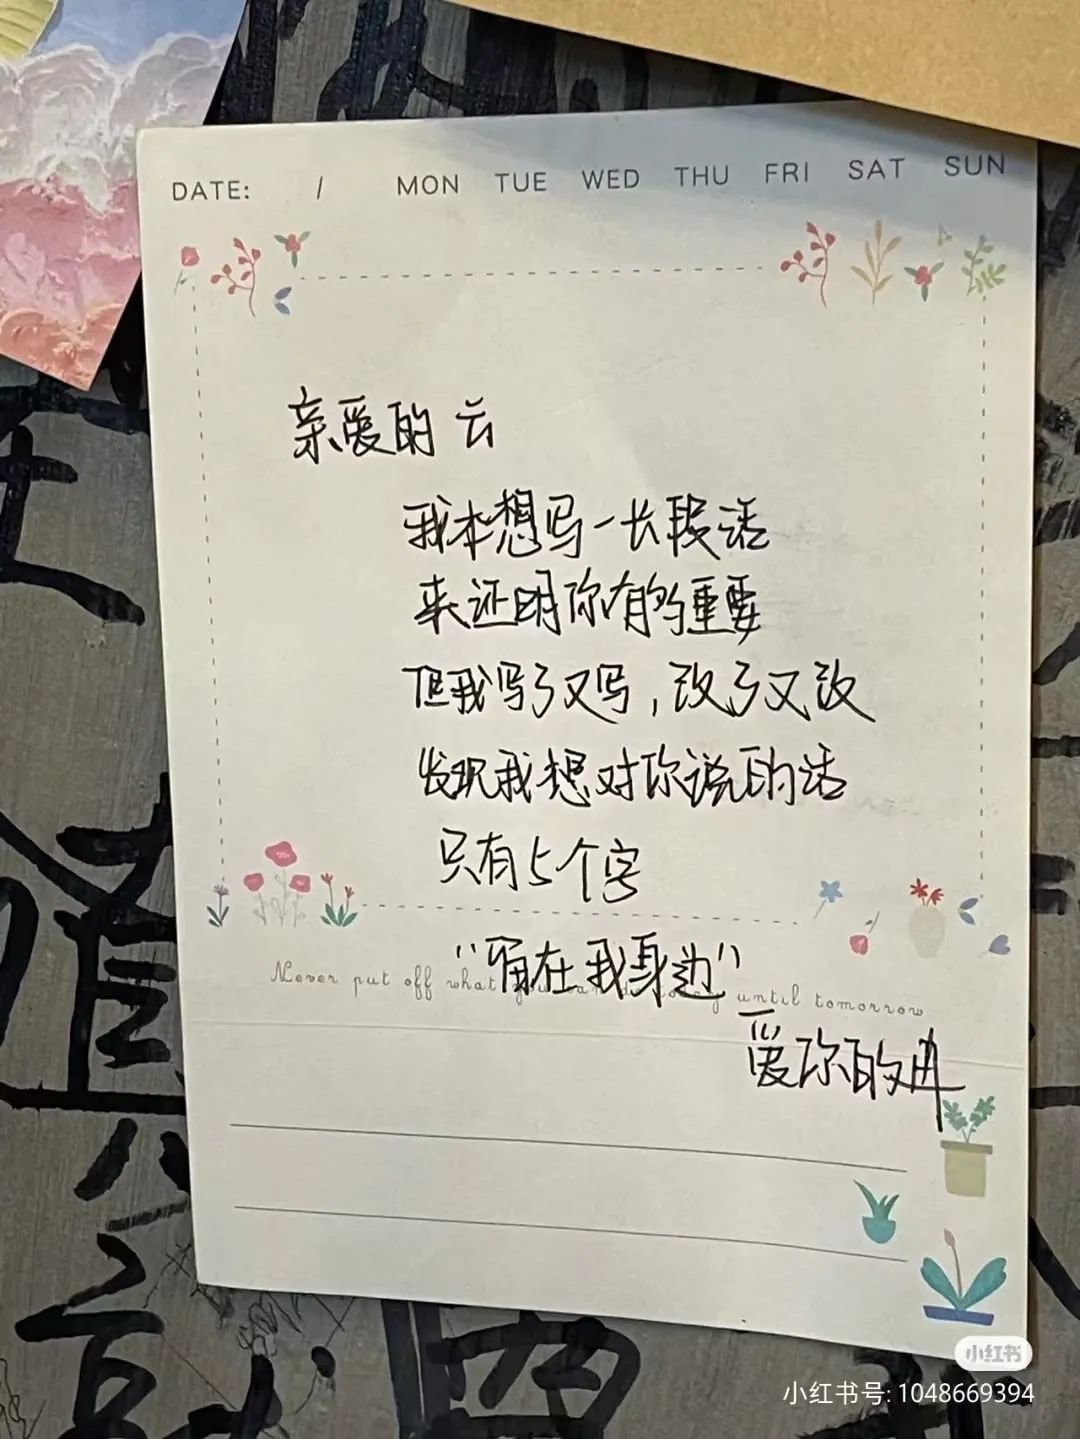 DATE: / MON TUE WED THU FRI SAT SUN
亲爱的 云
我本想写一长段话
来证明你有的重要
但我写了又写，改了又改
发现我想对你说的话
只有5个字
“留在我身边”
Never put off what you can do today until tomorrow
爱你的冉
小红书
小红书号: 1048669394